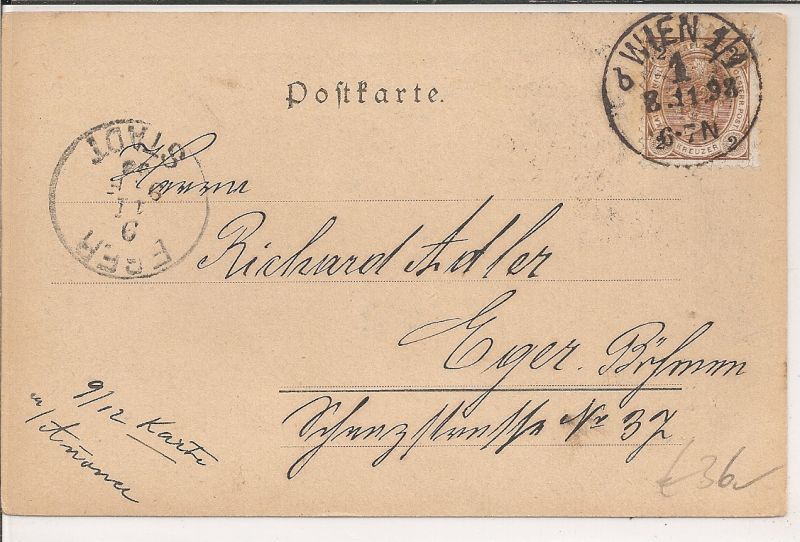 Postkarte.
WIEN 1/1
1
8.11.98
6·7N
2 KREUZER 2
EGER STADT
9
11
98
Herrn
Richard Adler
Eger. Böhmen
Schanzstrasse No 37
9/12 Karte